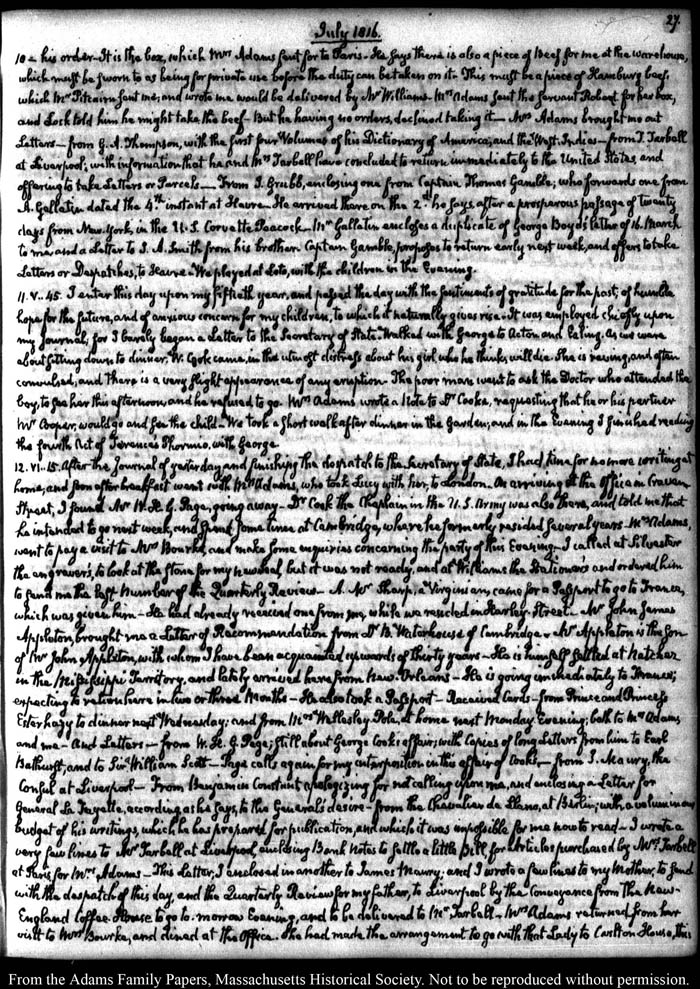 27.
July 1816.
10 — his order — It is the box, which Mrs Adams sent for to Paris — He says there is also a piece of Beef for me at the warehouse,
which must be sworn to as being for private use before the duty can be taken on it. This must be a piece of Hamburg beef,
which Mr Pitcairn sent me; and wrote me would be delivered by Mr Williams. Mrs Adams sent the servant Robert for her box,
and Lock told him he might take the beef. But he having no orders, declined taking it — Mrs Adams brought me out
Letters — from G. A. Thompson, with the first four Volumes of his Dictionary of America, and the West-Indies — from J. Tarbell
at Liverpool; with information that he and Mrs Tarbell have concluded to return immediately to the United States, and
offering to take Letters or Parcels — From J. Grubb, enclosing one from Captain Thomas Gamble; who forwards one from
A. Gallatin dated the 4th instant at Havre. He arrived there on the 2d he says, after a prosperous passage of twenty
days from New-York, in the U.S. Corvette Peacock. Mr Gallatin encloses a duplicate of George Boyd's letter of 16. March
to me and a Letter to J. A. Smith from his brother. Captain Gamble, proposes to return early next week, and offers to take
Letters or Despatches, to Havre. We played at Loto, with the children in the Evening.
11. V..45. I enter this day upon my fiftieth year, and passed the day with the sentiments of gratitude for the past, of humble
hope for the future, and of anxious concern for my children, to which it naturally gives rise. It was employed chiefly upon
my Journal; for I barely began a Letter to the Secretary of State. Walked with George to Acton and Ealing. As we were
about sitting down to dinner, W. Cook came, in the utmost distress about his girl who he thinks will die. She is raving, and often
convulsed; and there is a very slight appearance of any eruption. The poor man went to ask the Doctor who attended the
boy, to see her this afternoon, and he refused to go. Mrs Adams wrote a Note to Dr Cooke, requesting that he or his partner
Mr Cooper, would go and see the child — We took a short walk after dinner in the Garden; and in the Evening I finished reading
the fourth Act of Terence's Phormio, with George.
12. VI..15. After the Journal of yesterday and finishing the despatch to the Secretary of State, I had time for no more writing at
home, and soon after breakfast went with Mrs Adams, who took Lucy with her, to London. On arriving at the office in Craven
Street, I found Mr W. H. G. Page, going away — Dr Cook the Chaplain in the U.S. Army was also there, and told me that
he intended to go next week, and spend some time at Cambridge, where he formerly resided several years — Mrs Adams,
went to pay a visit to Mrs Bourke, and make some enquiries concerning the party of this Evening — I called at Silvester
the engraver's, to look at the stone for my new seal, but it was not ready, and at Williams the Stationer's and ordered him
to send me the last Number of the Quarterly Review — A Mr Sharp, a Virginian, came for a Passport to go to France,
which was given him — He had already received one from me, while we resided in Harley-Street — Mr John James
Appleton, brought me a Letter of Recommendation from Dr B. Waterhouse of Cambridge. Mr Appleton is the Son
of Mr John Appleton, with whom I have been acquainted upwards of thirty years — He is himself settled at Natchez
in the Mississippi Territory, and lately arrived here from New-Orleans — He is going immediately to France;
expecting to return here in two or three Months — He also took a Passport — Received Cards — from Prince and Princess
Esterhazy to dinner next Wednesday; and from Mrs Wellesley Pole, at home next Monday Evening; both to Mrs Adams
and me — And Letters — from W. H. G. Page; still about George Cook's affair; with Copies of long Letters from him to Earl
Bathurst, and to Sir William Scott — Page calls again for my interposition in this affair of Cook's — from J. Maury, the
Consul at Liverpool — From Benjamin Constant apologizing for not calling upon me, and enclosing a Letter for
General La Fayette, according as he says, to the General's desire — from the Chevalier de Llano, at Berlin; with a voluminous
budget of his writings, which he has prepared for publication, and which it was impossible for me now to read — I wrote a
very few lines to Mr Tarbell at Liverpool enclosing Bank Notes to settle a little Bill, for Articles purchased by Mrs Tarbell
at Paris for Mrs Adams — This letter, I enclosed in another to James Maury; and I wrote a few lines to my Mother, to send
with the despatch of this day, and the Quarterly Review for my father, to Liverpool by the conveyance from the New-
England Coffee-House to go to-morrow Evening, and to be delivered to Mr Tarbell — Mrs Adams returned from her
visit to Mrs Bourke, and dined at the Office. She had made the arrangement to go with that Lady to Carlton House, this
From the Adams Family Papers, Massachusetts Historical Society. Not to be reproduced without permission.